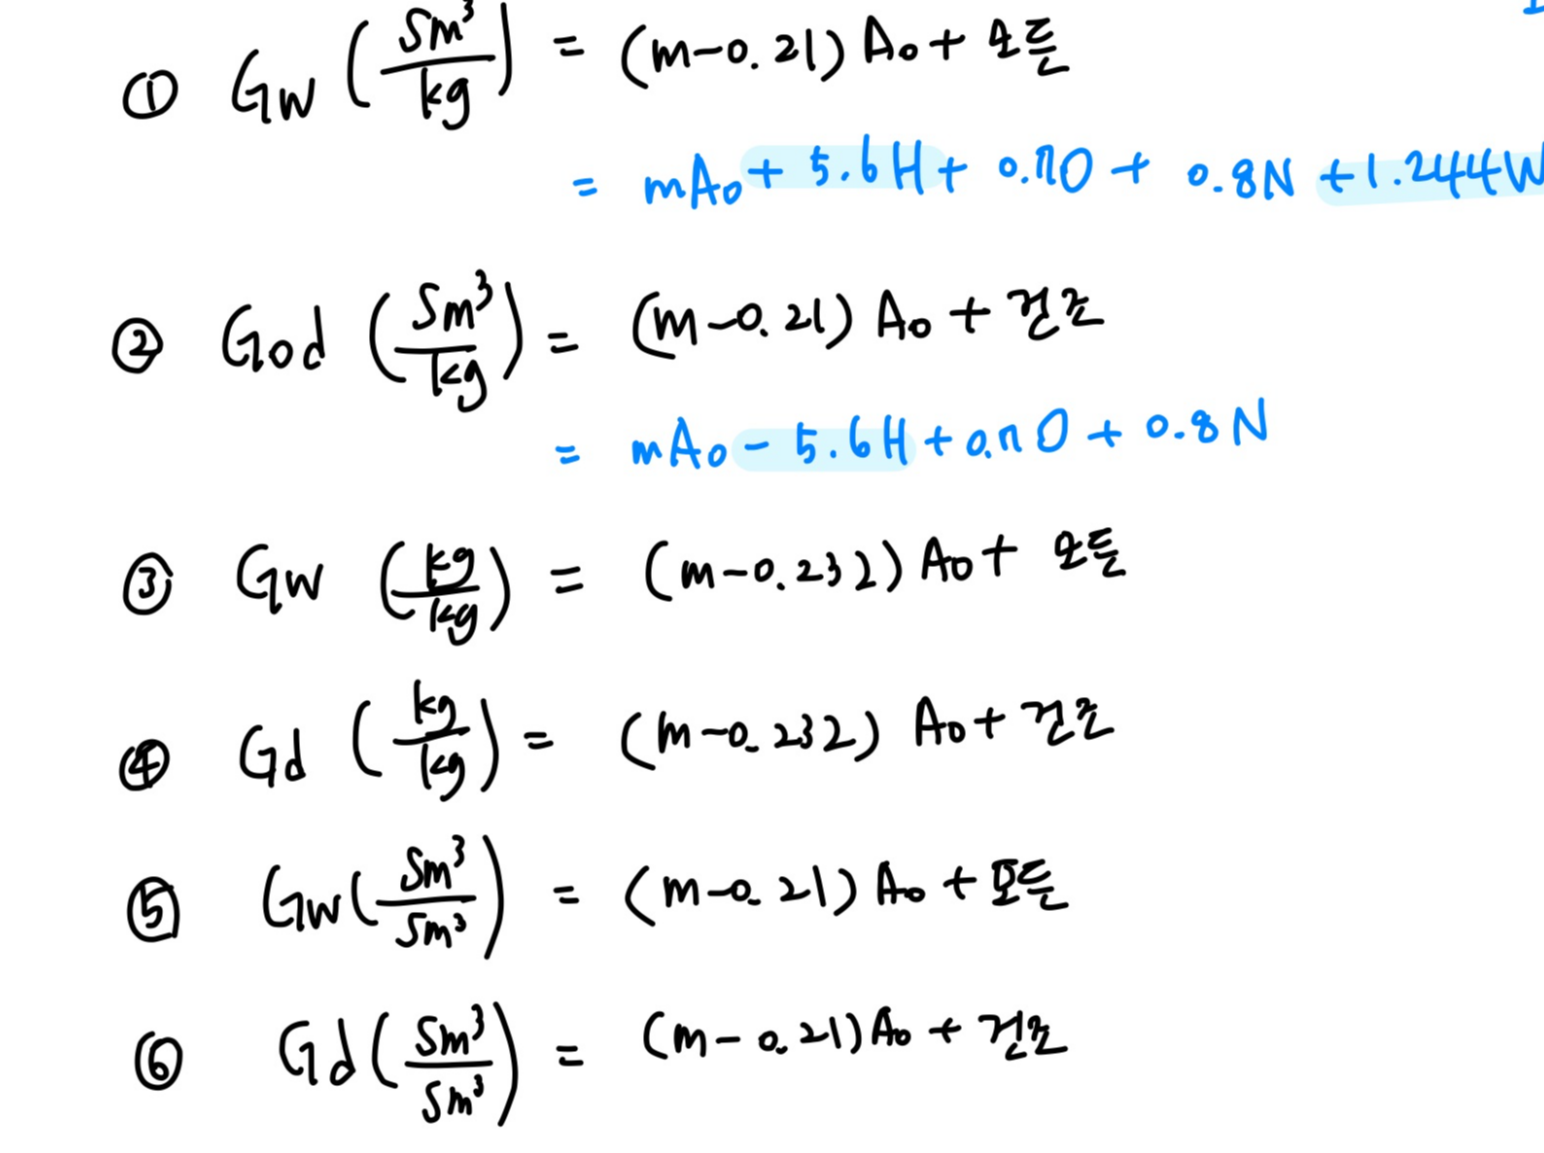 ① Gw (Sm³/kg) = (m-0.21) A₀ + 모든
= mA₀ + 5.6H + 0.7O + 0.8N + 1.244W
② God (Sm³/kg) = (m-0.21) A₀ + 건조
= mA₀ - 5.6H + 0.7O + 0.8N
③ Gw (kg/kg) = (m-0.232) A₀ + 모든
④ Gd (kg/kg) = (m-0.232) A₀ + 건조
⑤ Gw (Sm³/Sm³) = (m-0.21) A₀ + 모든
⑥ Gd (Sm³/Sm³) = (m-0.21) A₀ + 건조